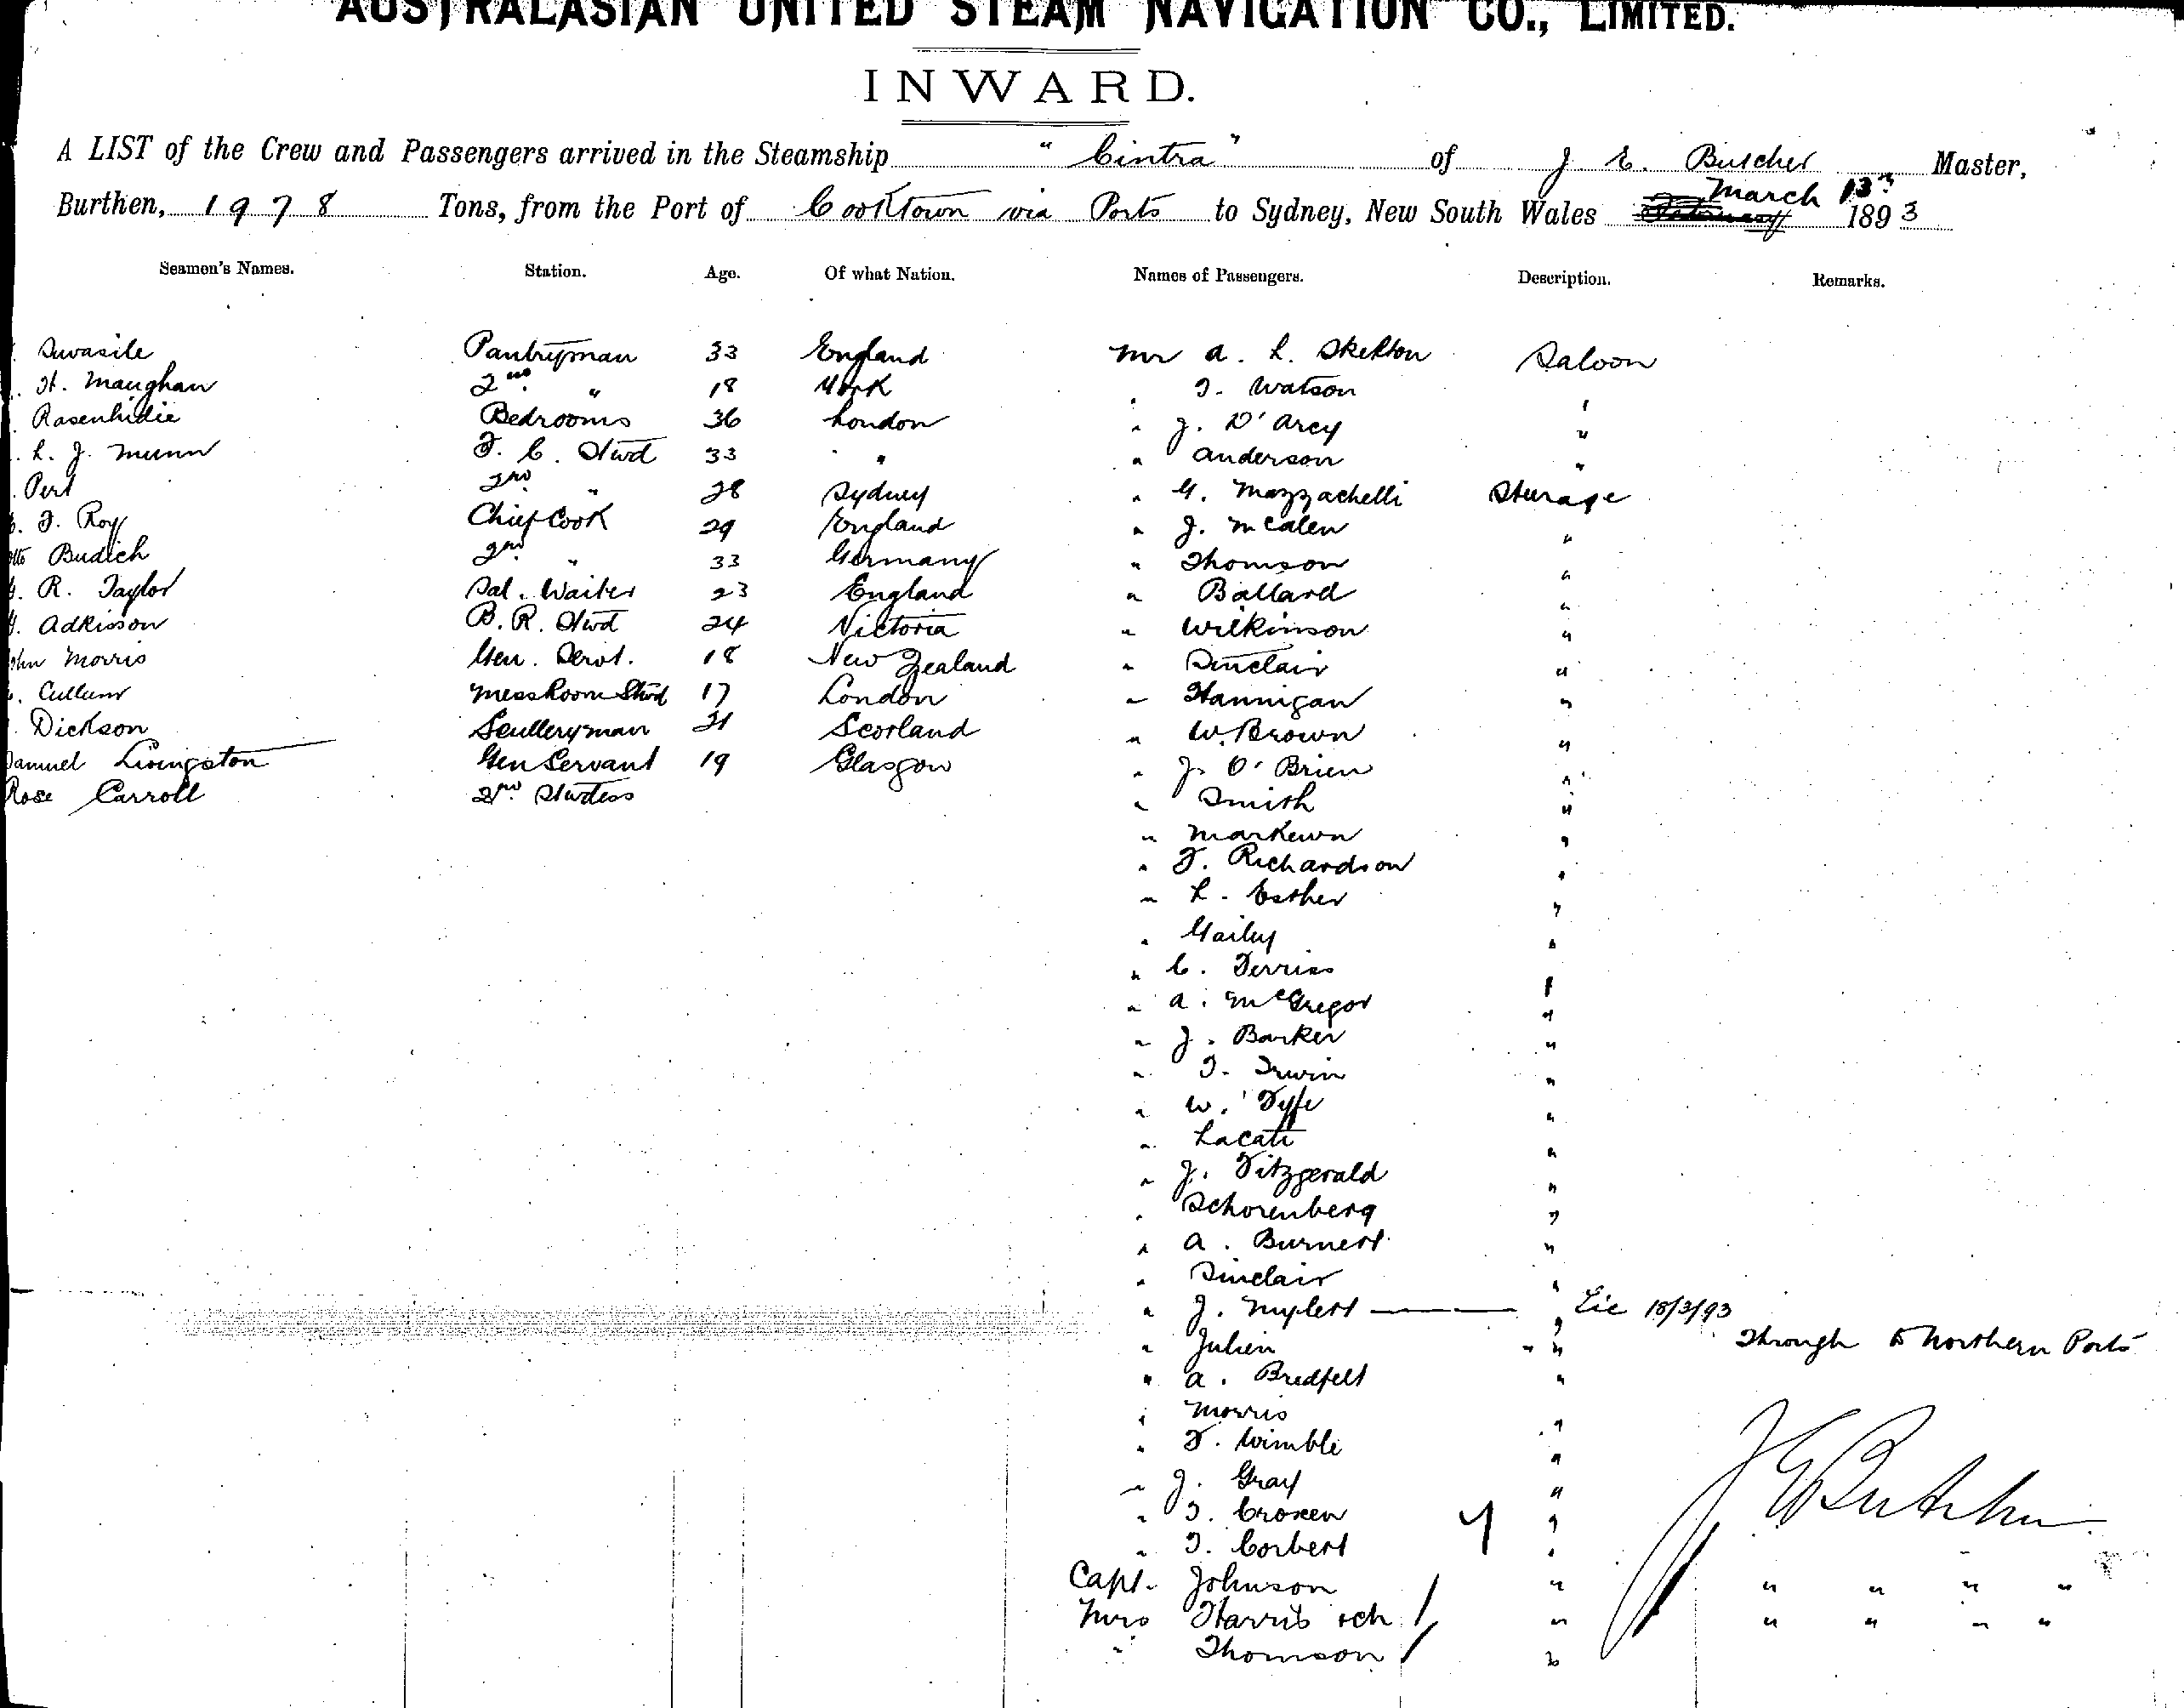 AUSTRALASIAN UNITED STEAM NAVIGATION CO., LIMITED.
INWARD.
A LIST of the Crew and Passengers arrived in the Steamship "Cintra" of J. E. Butcher Master,
Burthen, 1978 Tons, from the Port of Cooktown via Ports to Sydney, New South Wales March 13th 1893
Seamen's Names. Station. Age. Of what Nation. Names of Passengers. Description. Remarks.
Pantryman 33 England Mr A. L. Skelton Saloon
H. Maughan 2nd " 18 York " T. Watson "
Bedrooms 36 London " J. D'Arcy "
L. J. Munn F. C. Stwd 33 " " Anderson "
Pert 2nd " 28 Sydney " G. Mazzachelli Sterage
F. Roy Chief Cook 29 England " J. McAlen "
Otto Budich 2nd " 33 Germany " Thomson "
R. Taylor Sal. Waiter 23 England " Ballard "
Adkisson B. R. Stwd 24 Victoria " Wilkinson "
John Morris Gen. Servt. 18 New Zealand " Sinclair "
Cullum Messroom Stwd 17 London " Hannigan "
Dickson Sculleryman 21 Scotland " W. Brown "
Samuel Livingston Gen Servant 19 Glasgow " J. O'Brien "
Rose Carroll 2nd Stwdess " Smith "
" Markewn "
" F. Richardson "
" L. Esther "
" Gailey "
" C. Ferris "
" A. McGregor "
" J. Barker "
" T. Irwin "
" W. Fyfe "
" Lacate "
" J. Fitzgerald "
" Schorenberg "
" A. Burnett "
" Sinclair "
" J. Myлett — "
" Julien " " Through to Northern Ports
" A. Bredfelt "
" Morris "
" F. Wimble "
" J. Gray "
" T. Croxen "
" T. Corbert "
J E Butcher
Capt. Johnson " " " " "
Mrs Harris " " " " "
" Thomson "